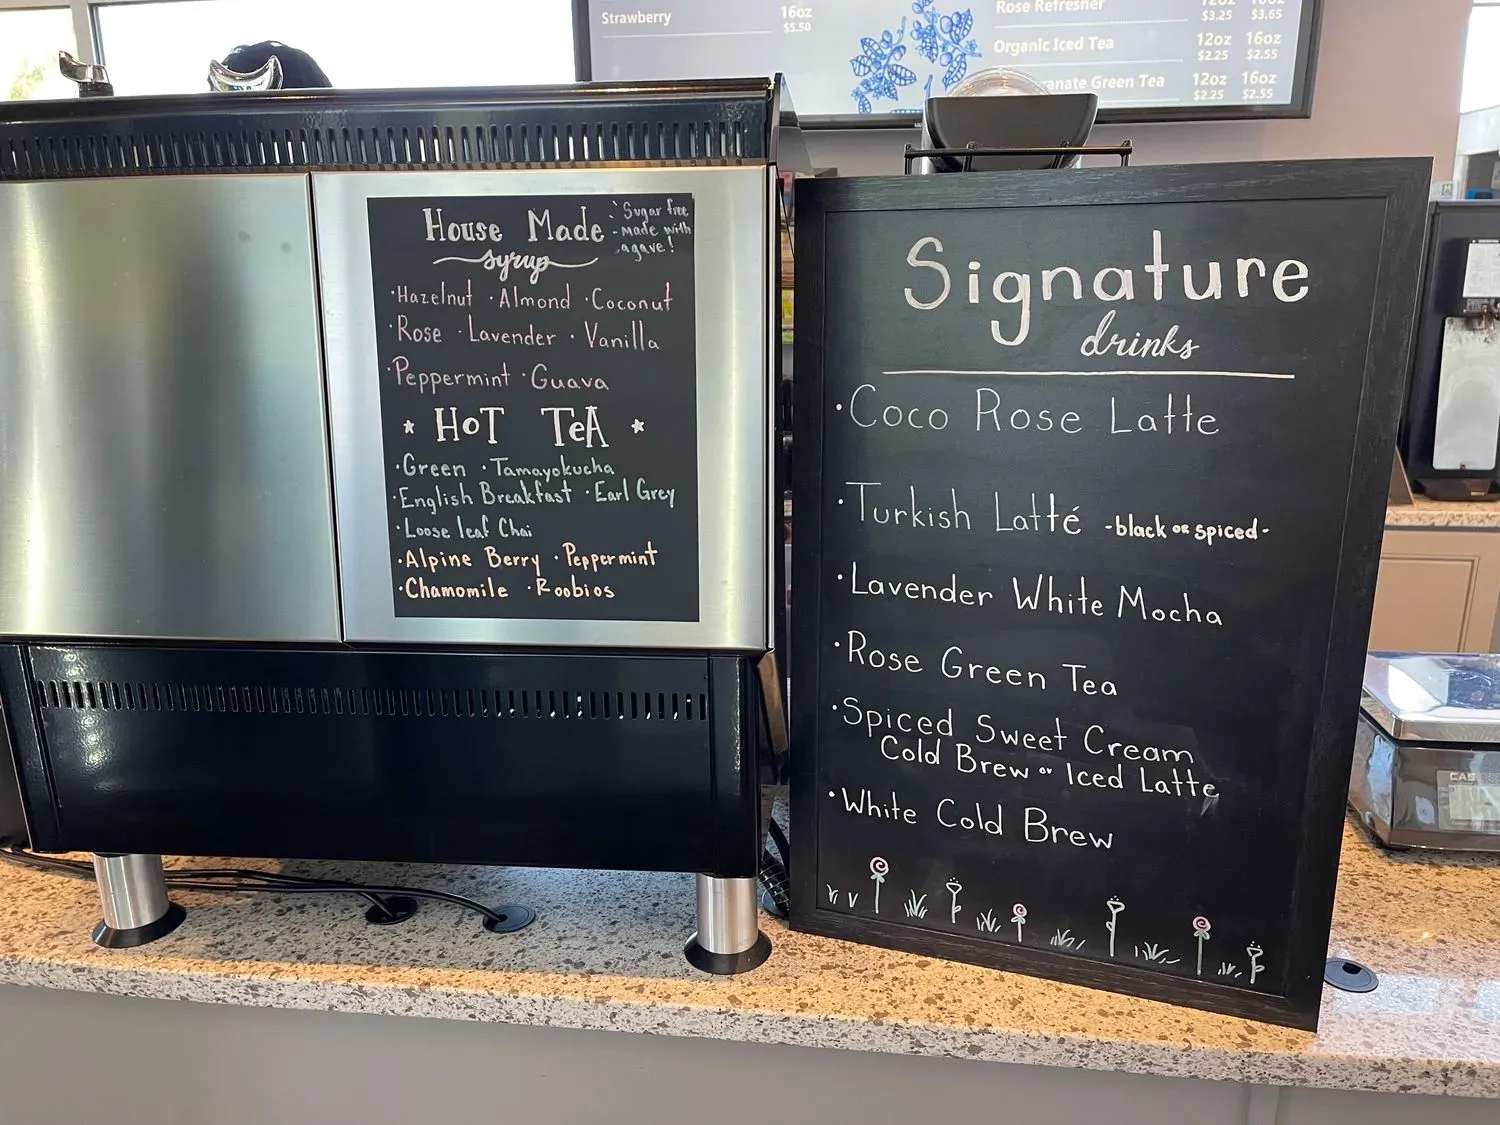 Strawberry 16oz
$5.50
Rose Refresher 12oz 16oz
$3.25 $3.65
Organic Iced Tea 12oz 16oz
$2.25 $2.55
Green Tea 12oz 16oz
$2.25 $2.55
House Made
syrup
Sugar free
- made with
agave!
·Hazelnut ·Almond ·Coconut
·Rose ·Lavender ·Vanilla
·Peppermint ·Guava
HOT TEA
·Green ·Tamayokucha
·English Breakfast ·Earl Grey
·Loose leaf Chai
·Alpine Berry ·Peppermint
·Chamomile ·Roobios
Signature
drinks
·Coco Rose Latte
·Turkish Latté -black or spiced-
·Lavender White Mocha
·Rose Green Tea
·Spiced Sweet Cream
Cold Brew or Iced Latte
·White Cold Brew
CAS